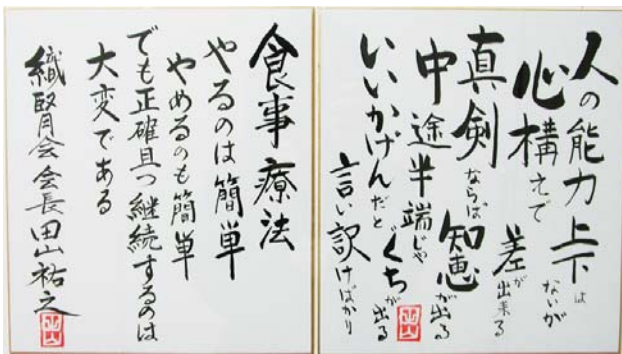 人の能力上下はないが
心構えで差が出来る
真剣ならば知恵が出る
中途半端じゃぐちが出る
いいかげんだと
言い訳けばかり
食事療法
やるのは簡単
やめるのも簡単
でも正確且つ継続するのは
大変である
織腎会会長田山祐之